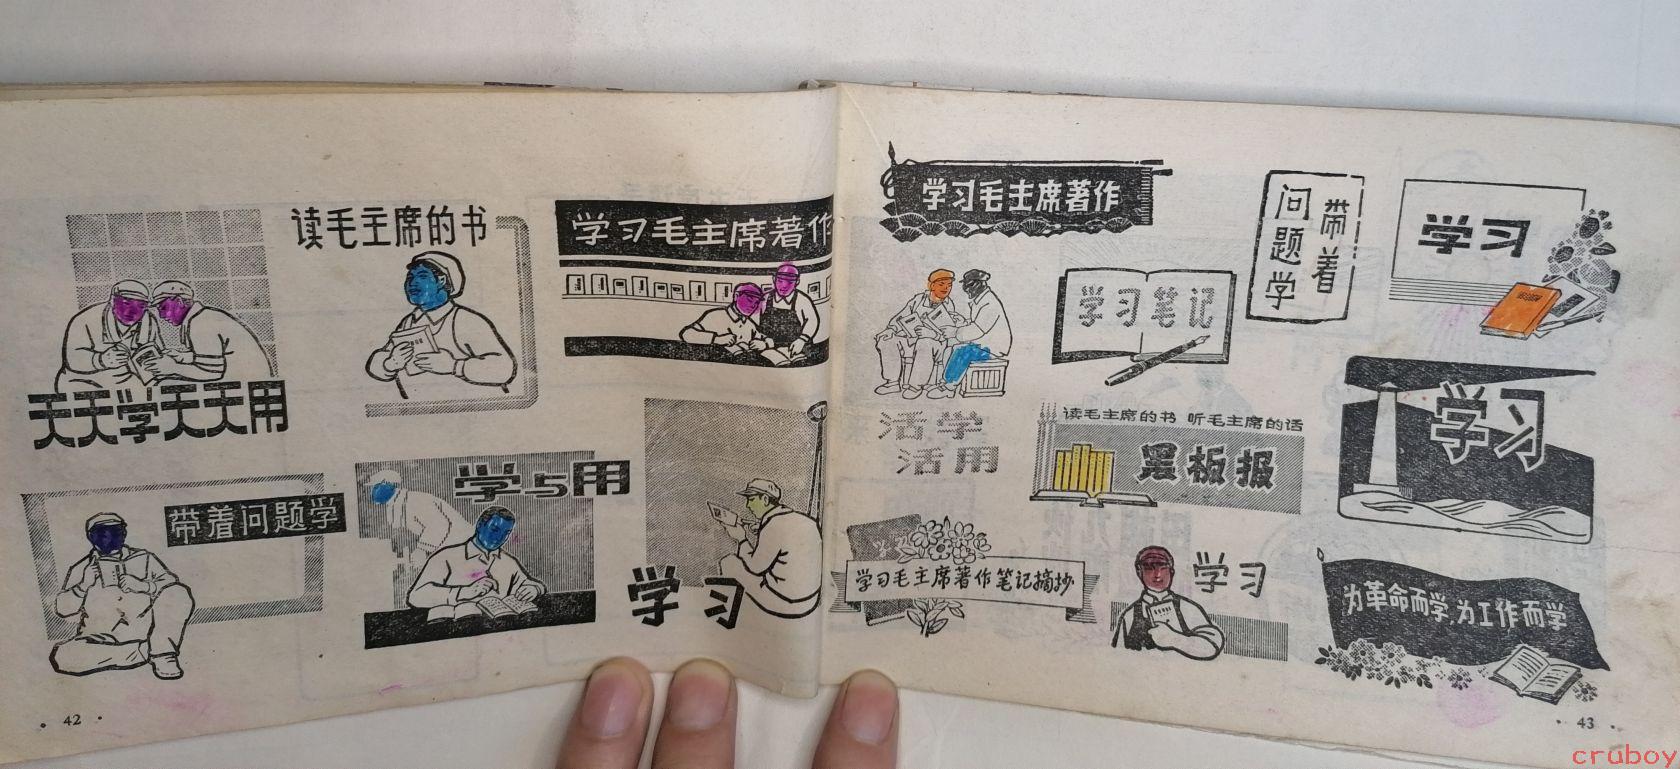 读毛主席的书
天天学天天用
学习毛主席著作
带着问题学
学与用
学习
· 42 ·
学习毛主席著作
学习笔记
带着
问题学
学习
活学
活用
读毛主席的书 听毛主席的话
黑板报
学习
学习
学习毛主席著作笔记摘抄
学习
为革命而学,为工作而学
· 43 ·
cruboy